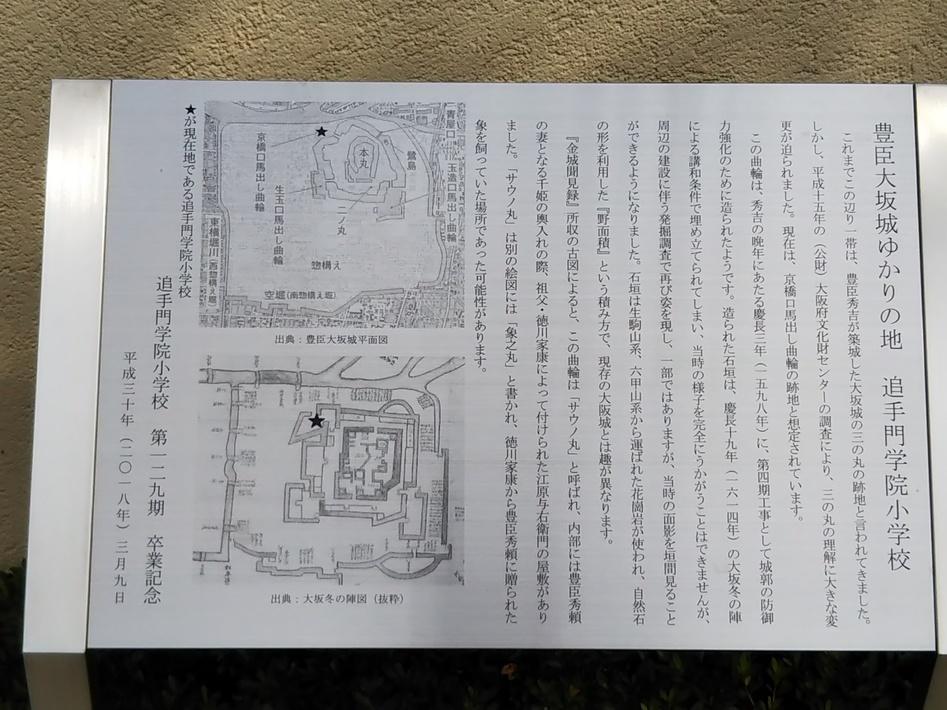 豊臣大坂城ゆかりの地　追手門学院小学校
これまでこの辺り一帯は、豊臣秀吉が築城した大坂城の三の丸の跡地と言われてきました。
しかし、平成十五年の（公財）大阪府文化財センターの調査により、三の丸の理解に大きな変
更が迫られました。現在は、京橋口馬出し曲輪の跡地と想定されています。
この曲輪は、秀吉の晩年にあたる慶長三年（一五九八年）に、第四期工事として城郭の防御
力強化のために造られたようです。造られた石垣は、慶長十九年（一六一四年）の大坂冬の陣
による講和条件で埋め立てられてしまい、当時の様子を完全にうかがうことはできませんが、
周辺の建設に伴う発掘調査で再び姿を現し、一部ではありますが、当時の面影を垣間見ること
ができるようになりました。石垣は生駒山系、六甲山系から運ばれた花崗岩が使われ、自然石
の形を利用した『野面積』という積み方で、現存の大阪城とは趣が異なります。
『金城聞見録』所収の古図によると、この曲輪は「サウノ丸」と呼ばれ、内部には豊臣秀頼
の妻となる千姫の輿入れの際、祖父・徳川家康によって付けられた江原与右衛門の屋敷があり
ました。「サウノ丸」は別の絵図には「象之丸」と書かれ、徳川家康から豊臣秀頼に贈られた
象を飼っていた場所であった可能性があります。
青屋口
玉造口馬出し曲輪
鷺島
本丸
二ノ丸
惣構え
京橋口馬出し曲輪
生玉口馬出し曲輪
空堀（南惣構え堀）
東横堀川（西惣構え堀）
出典：豊臣大坂城平面図
出典：大坂冬の陣図（抜粋）
★が現在地である追手門学院小学校
追手門学院小学校　第一二九期　卒業記念
平成三十年（二〇一八年）三月九日